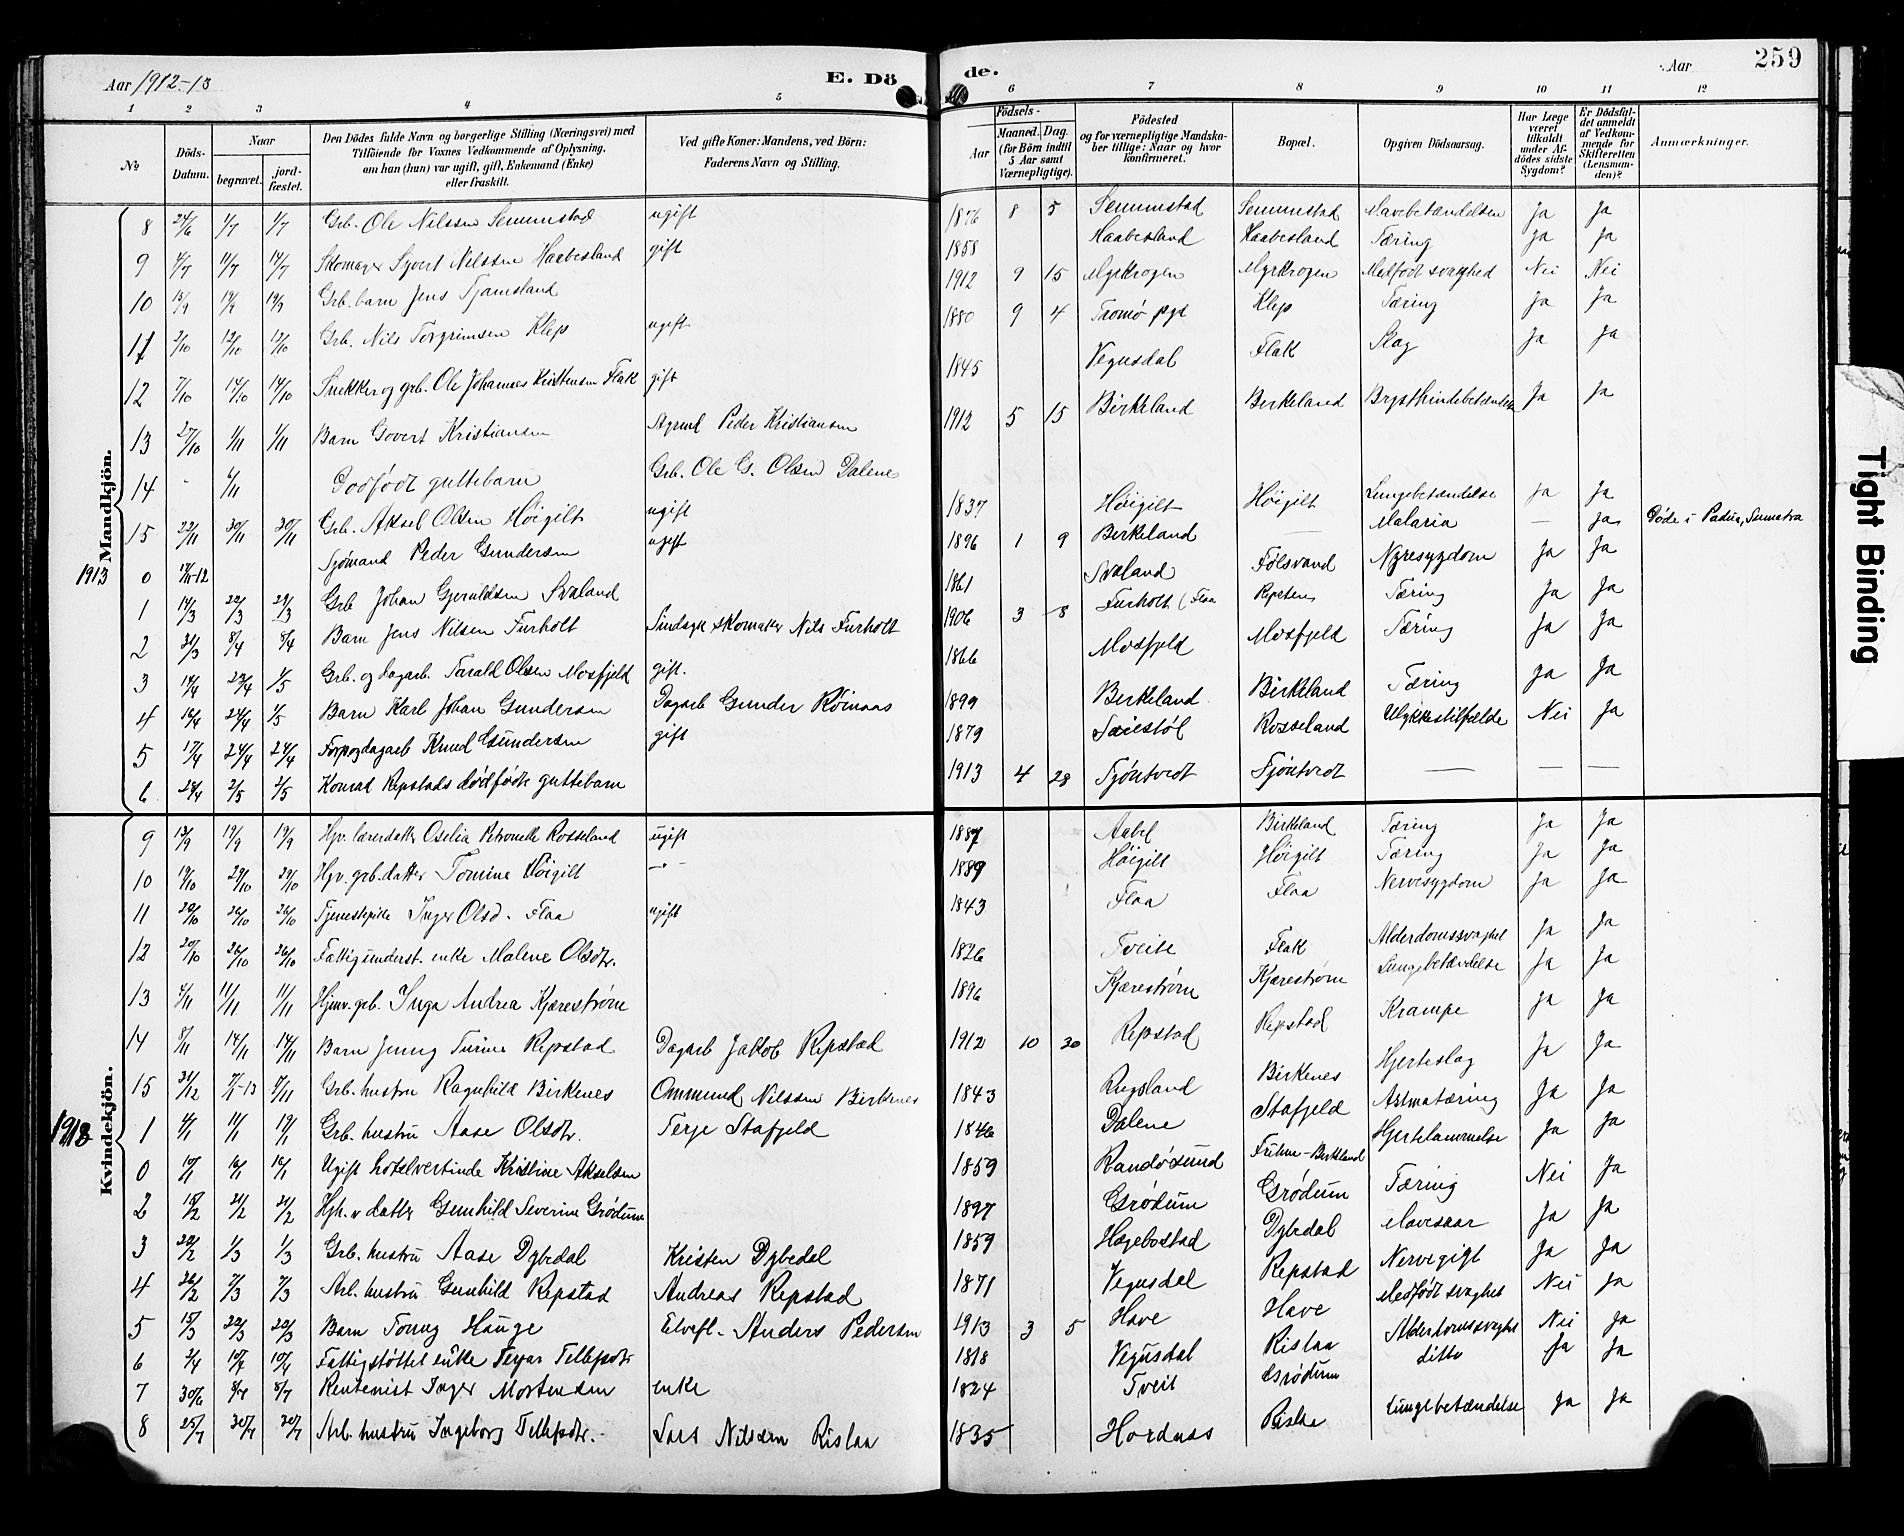 Aar 1912-13
E. Dö
de.
Aar
259
1 2 3 4 5 6 7 8 9 10 11 12
No.
Döds-Datum.
Naar
begravet.
jordfæstet.
Den Dödes fulde Navn og borgerlige Stilling (Næringsvei) med
Tilföiende for Voxnes Vedkommende af Oplysning,
om han (hun) var ugift, gift, Enkemand (Enke)
eller fraskilt.
Ved gifte Koner: Mandens, ved Börn:
Faderens Navn og Stilling.
Födsels-
Aar
Maaned. Dag.
(for Börn indtil
5 Aar samt
Værnepligtige).
Födested
og for værnepligtige Mandskaber tillige: Naar og hvor
konfirmeret.
Bopæl.
Opgiven Dödsaarsag.
Har Læge
været
tilkaldt
under Afdödes sidste
Sygdom?
Er Dödsfaldet anmeldt
af Vedkommende for
Skifteretten
(Lensmanden)?
Anmærkninger.
Mandkjön.
8 24/6 1/7 1/7 Grb. Ole Nilssen Semmstad ugift 1876 8 5 Semmstad Semmstad Mavebetændelsen Ja Ja
9 4/7 11/7 14/7 Skomager Syvert Nilssen Haabesland gift 1858 Haabesland Haabesland Tæring Ja Ja
10 15/9 19/9 19/9 Grb. barn Jens Tjamsland 1912 9 15 Myrkrogen Myrkrogen Medfødt svaghed Nei Nei
11 2/10 12/10 12/10 Grb. Nils Torgrimsen Klep ugift 1880 9 4 Tromø pgd Klep Tæring Ja Ja
12 7/10 14/10 14/10 Snekker og grb. Ole Johannes Kristensen Flak gift 1845 Vegusdal Flak Slag Ja Ja
13 27/10 1/11 1/11 Barn Govert Kristiansen Agend Peder Kristiansen 1912 5 15 Birkeland Birkeland Brysthindebetændelse Ja Ja
14 - 6/11 Dødfødt guttebarn Grb. Ole G. Olsen Dalene
15 22/11 30/11 30/11 Grb. Aksel Olsen Höigilt ugift 1837 Höigilt Höigilt Lungebetændelse Ja Ja
1913 0 12 Sjømand Peder Gundersen ugift 1896 1 9 Birkeland — Malaria — Ja Døde i Padua, Sumatra
1 14/3 22/3 29/3 Grb Johan Gjeruldsen Svaland 1861 Svaland Følsvand Nyresygdom Ja Ja
2 31/3 8/4 8/4 Barn Jens Nilsen Furholt skomaker Nils Furholt 1906 3 8 Furholt (Flaa Tæring Ja Ja
3 14/4 23/4 1/5 Grb. og dagarb. Tarald Olsen Mosfjeld gift. 1866 Mosfjeld Mosfjeld Tæring Ja Ja
4 16/4 24/4 1/5 Barn Karl Johan Gundersen Dagarb Gunder Röinaas 1899 Birkeland Birkeland Tæring Ja Ja
5 17/4 24/4 24/4 Forp og dagarb Knud Gundersen gift 1879 Rosseland Ulykkestilfælde Nei Ja
6 28/4 2/5 2/5 Konrad Repstads dødfødte guttebarn 1913 4 28 Tjöntvedt Tjöntvedt — — —
Kvindekjön.
9 13/9 19/9 19/9 Hjv. lærerdatter Oselia Petronelle Rosseland ugift 1887 Aabel Birkeland Tæring Ja Ja
10 19/10 29/10 29/10 Hjv. grb. datter Tomine Höigilt -"- 1889 Höigilt Höigilt Tæring Ja Ja
11 20/10 26/10 26/10 Tjenestepike Inger Olsd. Flaa ugift 1843 Flaa Flaa Nervesygdom Ja Ja
12 20/10 26/10 26/10 Fattigunderst. enke Malene Olsdtr. 1826 Tveite Flak Alderdomssvaghet Ja Ja
13 4/11 11/11 11/11 Hjmv. grb. Inga Andrea Kjærestrøm 1896 Kjærestrøm Kjærestrøm Lungebetændelse Ja Ja
14 8/11 14/11 14/11 Barn Jenny Turine Repstad Dagarb Jakob Repstad 1912 10 30 Repstad Repstad Krampe Ja Ja
15 31/12 Grb. hustru Ragnhild Birkenes Ommund Nilssen Birkenes 1843 Rugsland Birkenes Hjerteslag Ja Ja
1913 1 4/1 11/1 19/1 Grb. hustru Aase Olsdtr. Terje Stafjeld 1846 Dalene Stafjeld Astmatæring Ja Ja
0 10/1 16/1 16/1 Ugift hotelvertinde Kristine Akselsen 1859 Randösund Birkland Hjertelammelse Ja Ja
2 15/2 21/2 21/2 Hjh. v datter Gunhild Severine Grödum 1897 Grödum Grödum Tæring Nei Ja
3 20/2 1/3 1/3 Grb. hustru Aase Dybedal Kristen Dybedal 1859 Hægebostad Dybedal Mavesaar Ja Ja
4 26/2 7/3 7/3 Arb. hustru Gunhild Repstad Andreas Repstad 1871 Vegusdal Repstad Nervegigt Ja Ja
5 15/3 20/3 20/3 Barn Tonny Hauge Elvefl. Anders Pedersen 1913 3 5 Have Have Medfødt svaghet Nei Ja
6 2/4 10/4 10/4 Fattigstøttet enke Terjer Tellefsdtr 1818 Vegusdal Rislaa Alderdomssvaghet Nei Ja
7 30/6 8/7 8/7 Rentenist Inger Mortensen enke 1824 Tveit Grödum ditto Ja Ja
8 25/7 30/7 30/7 Arb. hustru Ingeborg Tellefsdtr. Lars Nilssen Rislaa 1835 Hordnæs Rislaa Lungebetændelse Ja Ja
Tight Binding